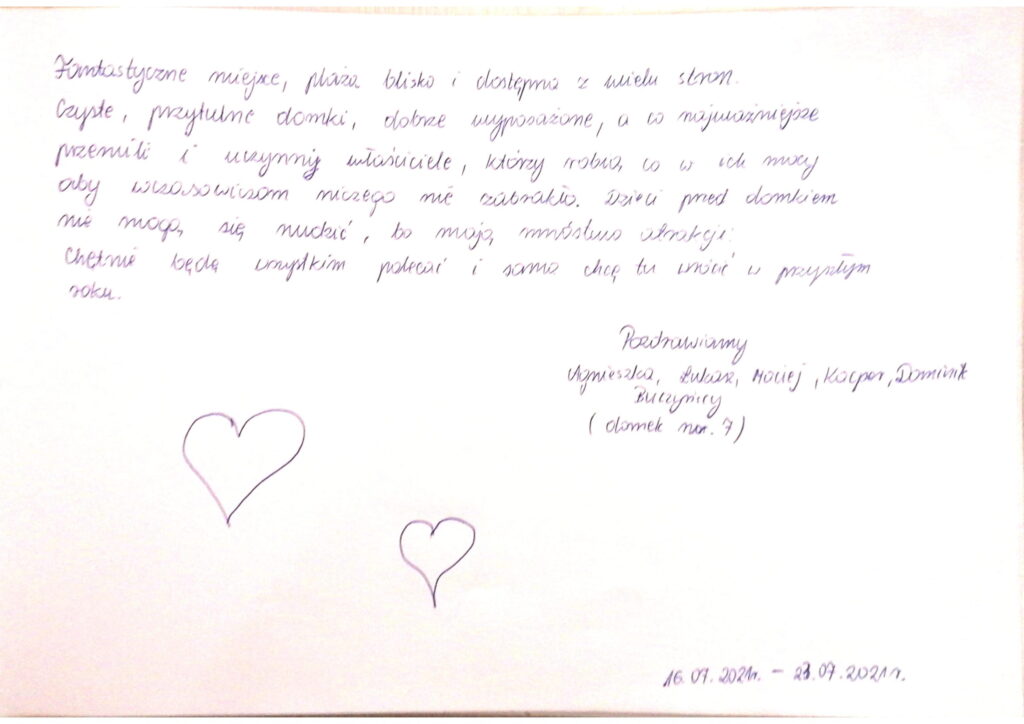 Fantastyczne miejsce, plaża blisko i dostępna z wielu stron.
Czyste, przytulne domki, dobrze wyposażone, a co najważniejsze
przemili i uczynni właściciele, którzy robią co w ich mocy
aby wczasowiczom niczego nie zabrakło. Dzieci przed domkiem
nie mogą się nudzić, bo mają mnóstwo atrakcji.
Chętnie będę wszystkim polecać i sama chcę tu wrócić w przyszłym
roku.
Pozdrawiamy
Agnieszka, Łukasz, Maciej, Kacper, Dominik
(domek nr. 7)
16.07.2021r. - 23.07.2021r.